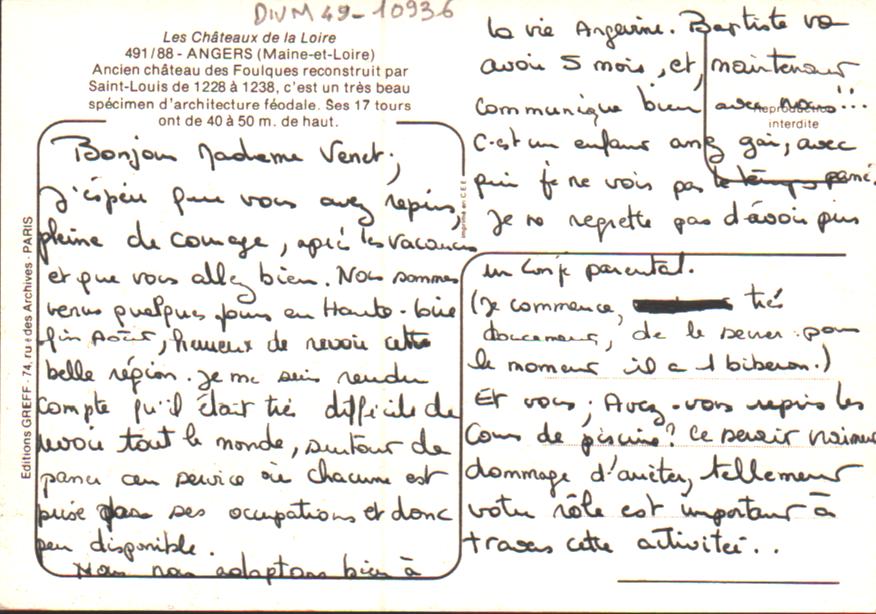 DIVM 49-10936
Les Châteaux de la Loire
491/88 - ANGERS (Maine-et-Loire)
Ancien château des Foulques reconstruit par
Saint-Louis de 1228 à 1238, c'est un très beau
spécimen d'architecture féodale. Ses 17 tours
ont de 40 à 50 m. de haut.
Editions GREFF - 74, rue des Archives - PARIS
Imprimé en C.E.E.
Reproduction
interdite
Bonjour Madame Venet,
J'espère que vous avez repris,
pleine de courage, après les vacances
et que vous allez bien. Nous sommes
venus quelques jours en Haute-Loire
fin Août, heureux de revoir cette
belle région. Je me suis rendu
compte qu'il était très difficile de
revoir tout le monde, surtout de
passer au service où chacune est
prise par ses occupations et donc
peu disponible.
Nous nous adaptons bien à
la vie Angevine. Baptiste va
avoir 5 mois, et, maintenant
communique bien avec nous!!!
C'est un enfant assez gai, avec
qui je ne vois pas le temps passé.
Je ne regrette pas d'avoir pris
un congé parental.
(Je commence, très
doucement, de le sevrer pour
le moment il a 1 biberon.)
Et vous; Avez-vous repris les
Cours de piscine? Ce serait vraiment
dommage d'arrêter, tellement
votre rôle est important à
travers cette activitée...